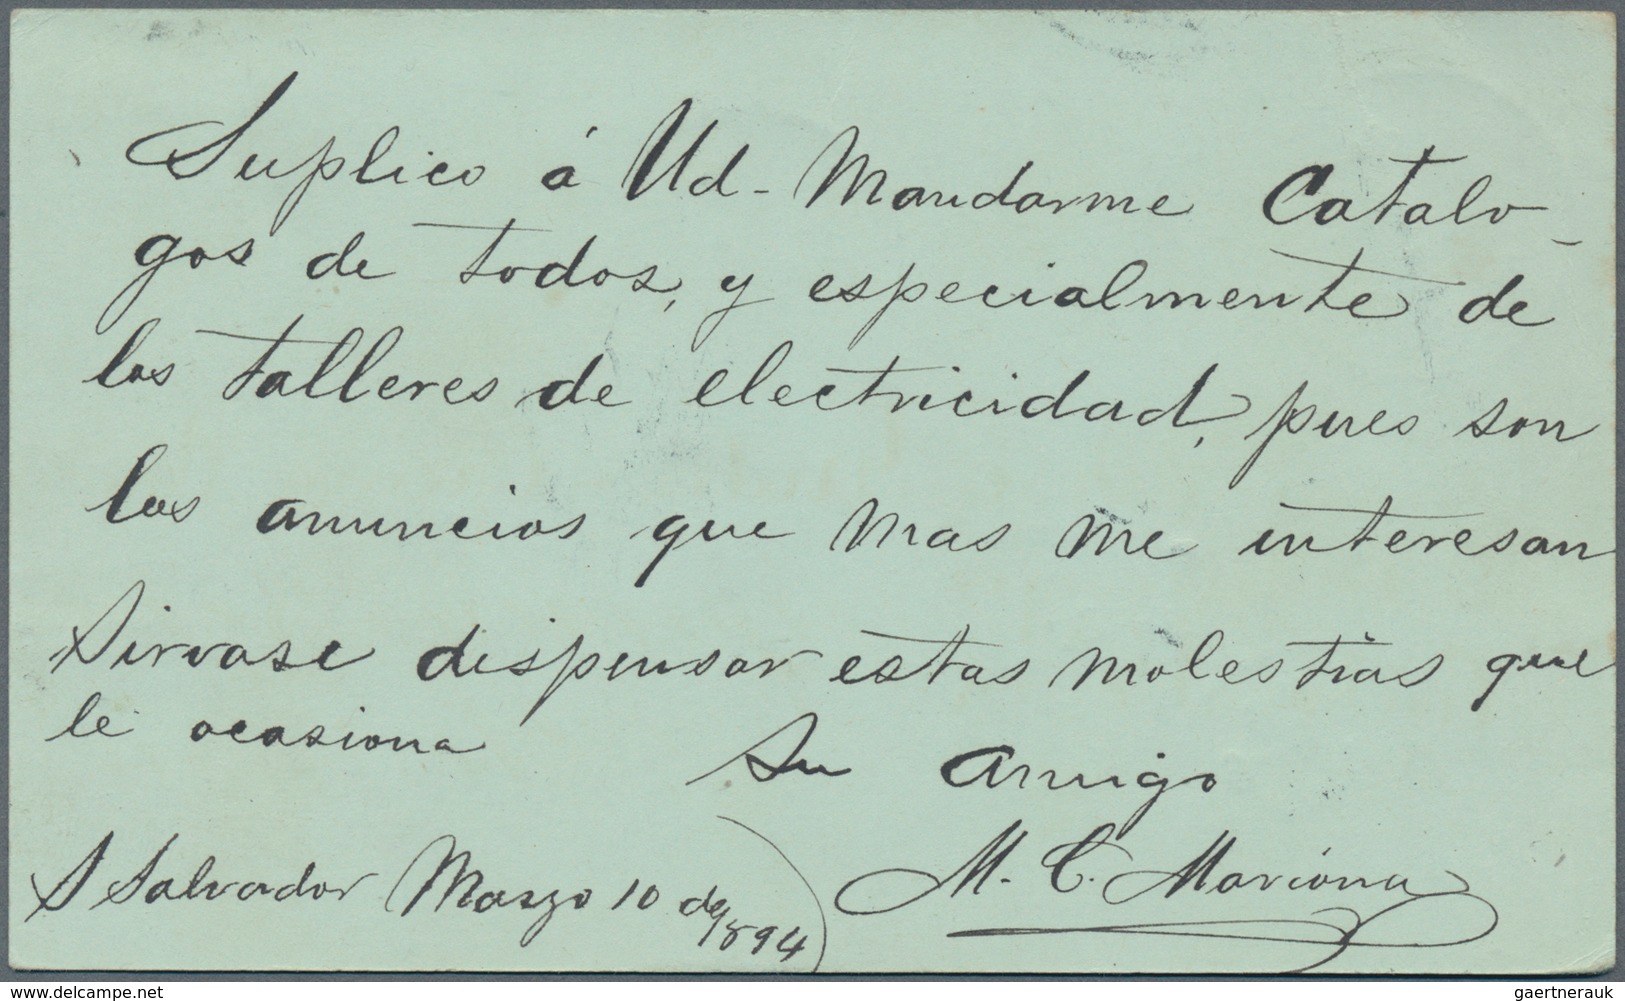 Suplico á Ud- Mandarme Catalo-
gos de todos, y especialmente de
los talleres de electricidad, pues son
los anuncios que mas me interesan
Sirvase dispensar estas molestias que
le ocasiona
Su Amigo
S Salvador Marzo 10 de 1894
M. C. Mariona
www.delcampe.net
gaertnerauk